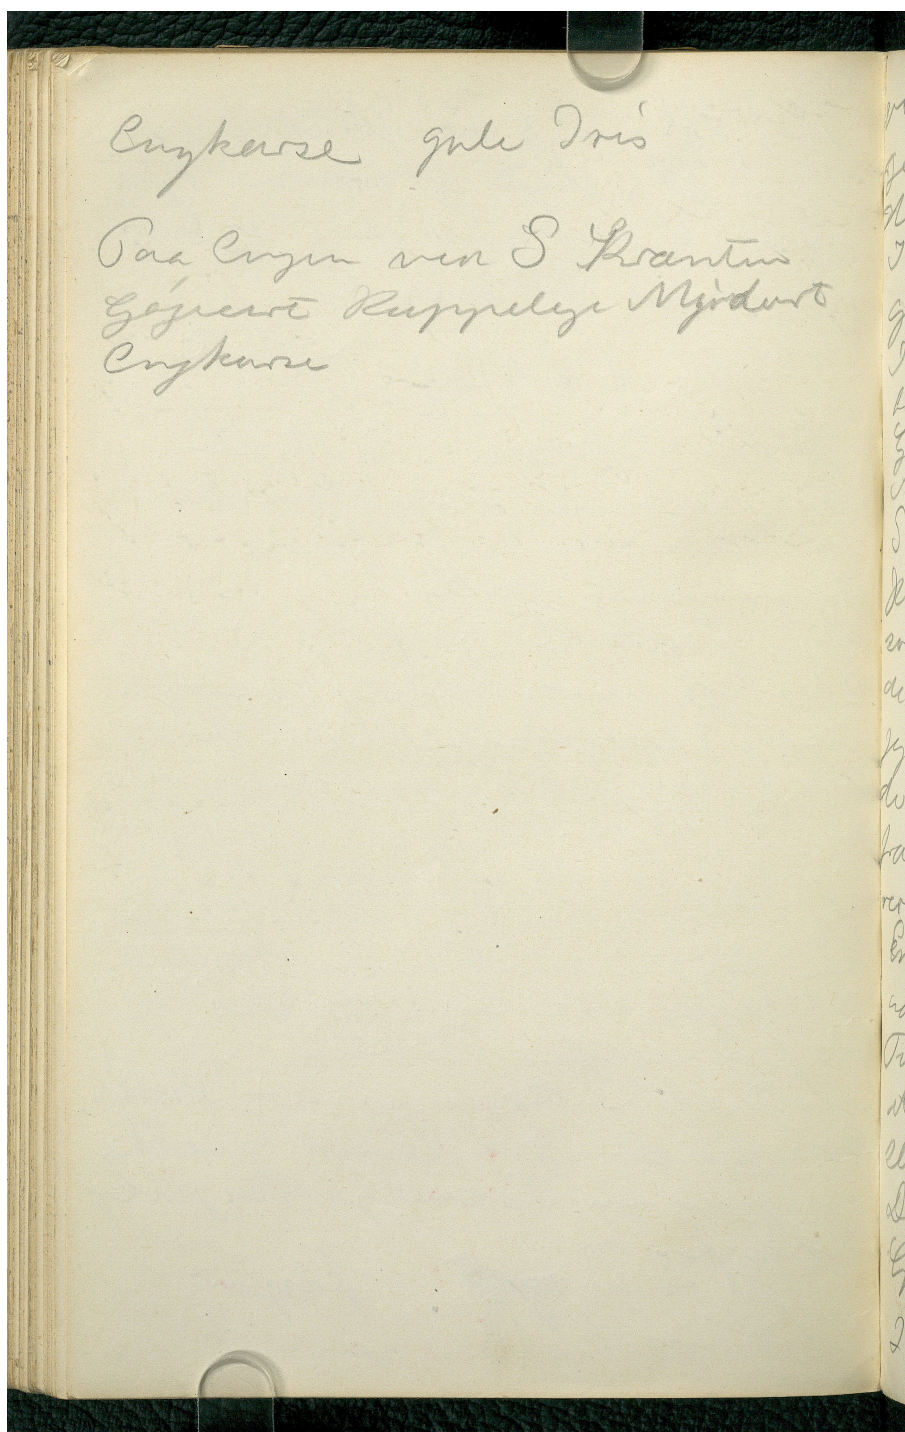 Engkarse gule Iris
Paa Engen ved S Skrænten
Gøgeurt Kuppeleje Mjødurt
Engkarse